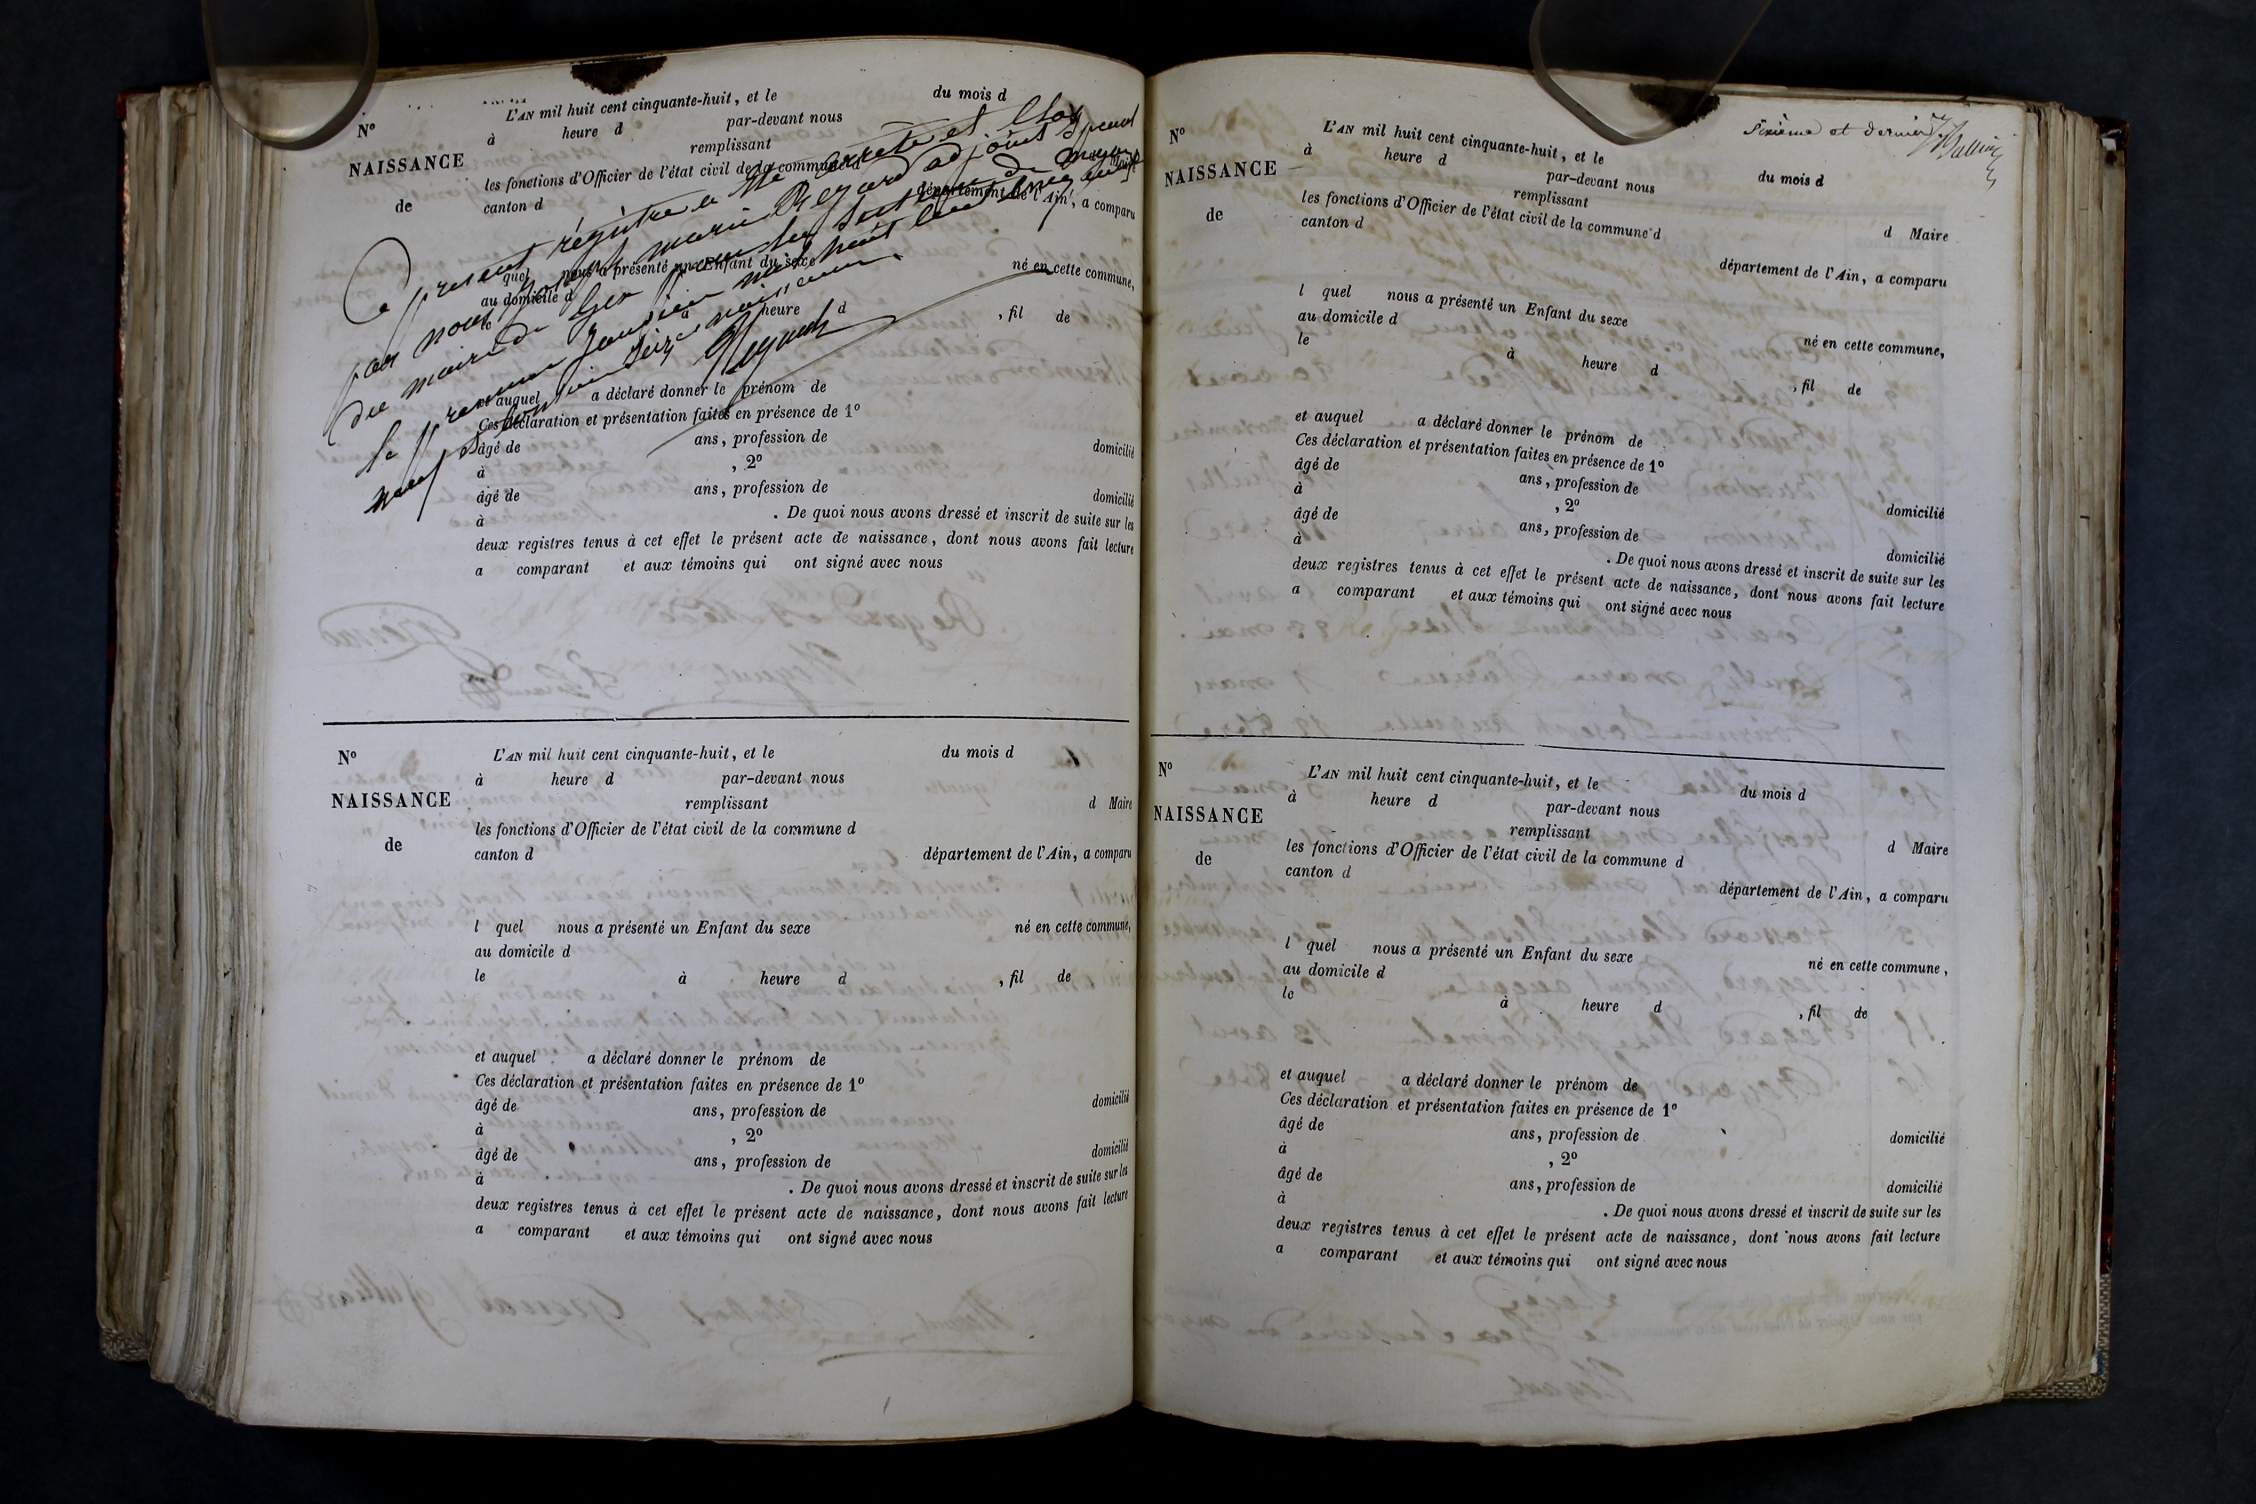 L'AN mil huit cent cinquante-huit, et le du mois d
à heure d par-devant nous
remplissant
d Maire
les fonctions d'Officier de l'état civil de la commune d
canton d département de l'Ain, a comparu
No
NAISSANCE
de
Le present régistre a été arrêté et clos
par nous Joseph marie Regard adjoint Spécial
du maire de Gex pour les Sections de
le premier Janvier mil huit cent cinquante
neuf contenant Seize naissances.
Regard
l quel nous a présenté un Enfant du sexe né en cette commune,
au domicile d
le à heure d , fil de
et auquel a déclaré donner le prénom de
Ces déclaration et présentation faites en présence de 1o
âgé de ans, profession de domicilié
à , 2o
âgé de ans, profession de domicilié
à . De quoi nous avons dressé et inscrit de suite sur les
deux registres tenus à cet effet le présent acte de naissance, dont nous avons fait lecture
a comparant et aux témoins qui ont signé avec nous
No
NAISSANCE
de
L'AN mil huit cent cinquante-huit, et le du mois d
à heure d par-devant nous
remplissant d Maire
les fonctions d'Officier de l'état civil de la commune d
canton d département de l'Ain, a comparu
l quel nous a présenté un Enfant du sexe né en cette commune,
au domicile d
le à heure d , fil de
et auquel a déclaré donner le prénom de
Ces déclaration et présentation faites en présence de 1o
âgé de ans, profession de domicilié
à , 2o
âgé de ans, profession de domicilié
à . De quoi nous avons dressé et inscrit de suite sur les
deux registres tenus à cet effet le présent acte de naissance, dont nous avons fait lecture
a comparant et aux témoins qui ont signé avec nous
Sixième et dernier
No
NAISSANCE
de
L'AN mil huit cent cinquante-huit, et le du mois d
à heure d par-devant nous
remplissant d Maire
les fonctions d'Officier de l'état civil de la commune d
canton d département de l'Ain, a comparu
l quel nous a présenté un Enfant du sexe né en cette commune,
au domicile d
le à heure d , fil de
et auquel a déclaré donner le prénom de
Ces déclaration et présentation faites en présence de 1o
âgé de ans, profession de domicilié
à , 2o
âgé de ans, profession de domicilié
à . De quoi nous avons dressé et inscrit de suite sur les
deux registres tenus à cet effet le présent acte de naissance, dont nous avons fait lecture
a comparant et aux témoins qui ont signé avec nous
No
NAISSANCE
de
L'AN mil huit cent cinquante-huit, et le du mois d
à heure d par-devant nous
remplissant d Maire
les fonctions d'Officier de l'état civil de la commune d
canton d département de l'Ain, a comparu
l quel nous a présenté un Enfant du sexe né en cette commune,
au domicile d
le à heure d , fil de
et auquel a déclaré donner le prénom de
Ces déclaration et présentation faites en présence de 1o
âgé de ans, profession de domicilié
à , 2o
âgé de ans, profession de domicilié
à . De quoi nous avons dressé et inscrit de suite sur les
deux registres tenus à cet effet le présent acte de naissance, dont nous avons fait lecture
a comparant et aux témoins qui ont signé avec nous